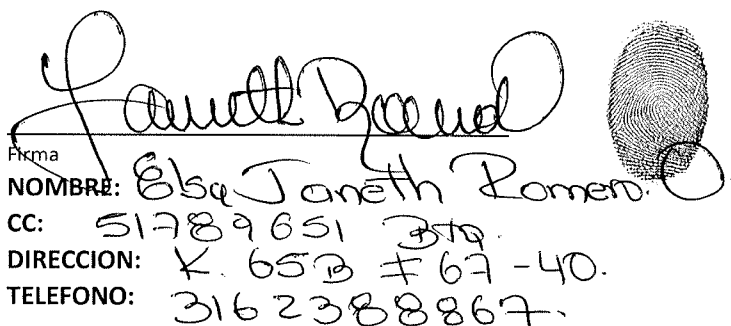 Janeth Romero
Firma
NOMBRE: Elsa Janeth Romero. O.
CC: 51789651 Bta.
DIRECCION: K. 65B # 67 - 40.
TELEFONO: 316 2388867.